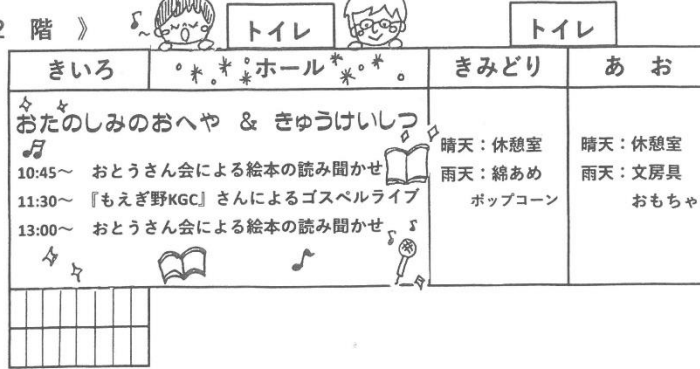 2 階 》
トイレ
トイレ
きいろ
ホール
きみどり
あ お
おたのしみのおへや & きゅうけいしつ
10:45～ おとうさん会による絵本の読み聞かせ
11:30～ 『もえぎ野KGC』さんによるゴスペルライブ
13:00～ おとうさん会による絵本の読み聞かせ
晴天：休憩室
雨天：綿あめ
ポップコーン
晴天：休憩室
雨天：文房具
おもちゃ